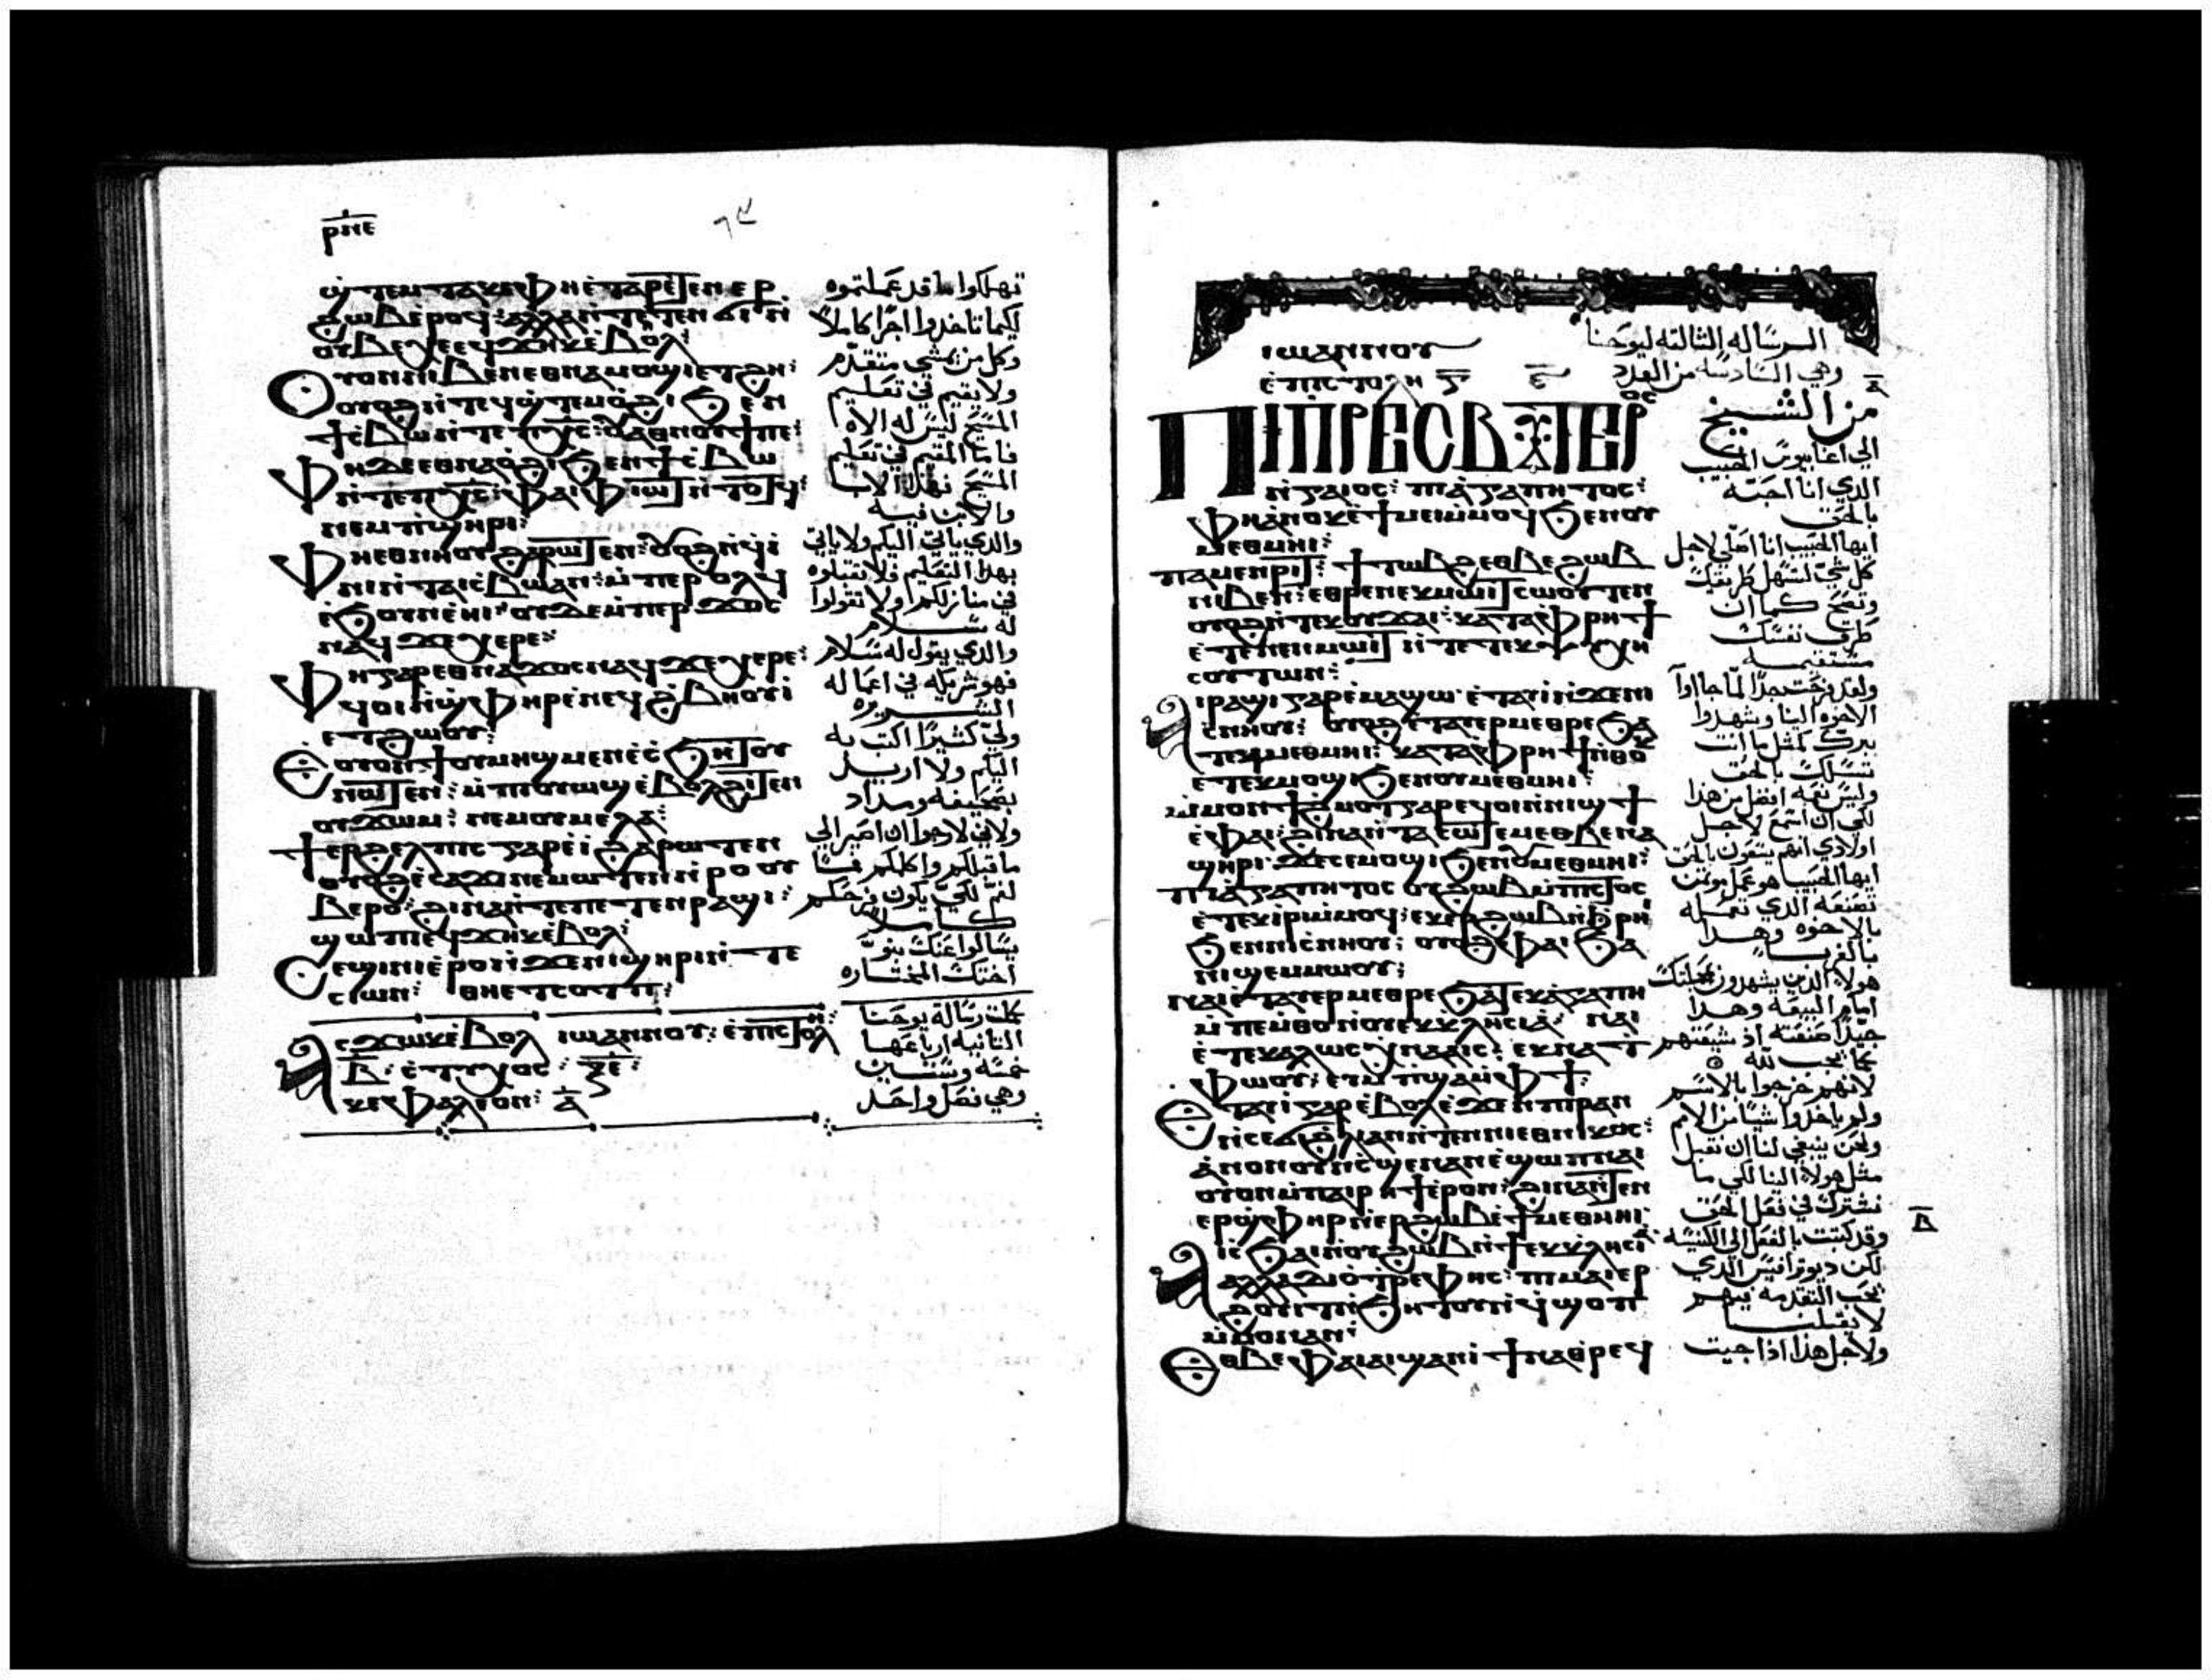 ⲣⲛⲉ
ϣⲧⲉⲙⲧⲁⲕⲉ ⲫⲏ ⲉ̀ⲧⲁⲣⲉⲧⲉⲛ ⲉⲣ
ϩⲱⲃ ⲉⲣⲟϥ: ⲁⲗⲗⲁ ⲛ̀ⲧⲉⲧⲉⲛ ϭⲓ ⲛ̀
ⲟⲩⲃⲉⲭⲉ ⲉϥϫⲏⲕ ⲉ̀ⲃⲟⲗ:
Ⲟⲩⲟⲛ ⲛⲓⲃⲉⲛ ⲉⲑⲛⲁⲙⲟϣⲓ ⲉⲧϩⲏ:
ⲟⲩⲟϩ ⲛ̀ⲧⲉϥϣ̀ⲧⲉⲙⲟ̀ϩⲓ ϧⲉⲛ
ϯⲥ̀ⲃⲱ ⲛ̀ⲧⲉ ⲡⲭⲥ: ⲟ̀ⲁⲑⲛⲟⲩϯ ⲡⲉ:
Ⲫⲏ ⲇⲉ ⲉⲑⲛⲁⲟ̀ϩⲓ ϧⲉⲛ ϯⲥ̀ⲃⲱ
ⲛ̀ⲧⲉ ⲡⲭⲥ: ⲫⲁⲓ ⲫⲓⲱⲧ ⲛ̀ⲧⲟⲧϥ:
ⲛⲉⲙ ⲡⲓϣⲏⲣⲓ:
Ⲫⲏ ⲉⲑⲛⲏⲟⲩ ϩⲁⲣⲱⲧⲉⲛ: ⲟⲩⲟϩ ⲛ̀ϥⲓ̀
ⲛⲓ ⲛ̀ⲧⲁⲓⲥ̀ⲃⲱ ⲁⲛ: ⲙ̀ⲡⲉⲣ ⲟⲗϥ
ⲉ̀ϧⲟⲩⲛ ⲉ̀ⲏⲓ ⲟⲩⲇⲉ ⲙ̀ⲡⲉⲣ ϫⲟⲥ
ⲛⲁϥ ϫⲉ ⲭⲉⲣⲉ:
Ⲫⲏ ⲅⲁⲣ ⲉⲑⲛⲁϫⲟⲥ ⲛⲁϥ ϫⲉ ⲭⲉⲣⲉ:
ϥⲟⲓ ⲛ̀ϣ̀ⲫⲏⲣ ⲉ̀ⲛⲉϥϩ̀ⲃⲏⲟⲩⲓ̀
ⲉⲧϩⲱⲟⲩ:
Ⲉⲟⲩⲟⲛϯ ⲟⲩⲙⲏϣ ⲙⲉⲛ ⲉ̀ⲥ̀ϧⲏⲧⲟⲩ
ⲛⲱⲧⲉⲛ: ⲙ̀ⲡⲓⲟⲩⲱϣ ⲉ̀ⲃⲟⲗ ϩⲓⲧⲉⲛ
ⲟⲩϫⲱⲙ: ⲛⲉⲙ ⲟⲩⲙⲉⲗⲁ:
Ϯⲉⲣϩⲉⲗⲡⲓⲥ ⲅⲁⲣ ⲉ̀ⲓ̀ ϩⲁⲣⲱⲧⲉⲛ
ⲟⲩⲟϩ ⲉ̀ⲥⲁϫⲓ ⲛⲉⲙⲱⲧⲉⲛ ⲛ̀ⲣⲟ ⲟⲩ
ⲃⲉ ⲣⲟ: ϩⲓⲛⲁ ⲛ̀ⲧⲉ ⲡⲉⲧⲉⲛⲣⲁϣⲓ:
ϣⲱⲡⲓ ⲉϥϫⲏⲕ ⲉ̀ⲃⲟⲗ:
Ⲥⲉϣⲓⲛⲓ ⲉ̀ⲣⲟ ⲛ̀ϫⲉ ⲛⲓϣⲏⲣⲓ ⲛ̀ⲧⲉ
ⲥⲱⲛⲓ: ⲑⲏ ⲉⲧⲥⲟⲧⲡ:
Ⲁⲥϫⲱⲕ ⲉ̀ⲃⲟⲗ ⲓⲱⲁⲛⲛⲟⲩ: ⲉ̀ⲡⲓⲥⲧⲟⲗⲏ:
ⲃ̅: ⲥ̀ⲧⲩⲭⲟⲥ: ⲝⲉ̅:
ⲕⲉⲫⲁⲗⲉⲟⲛ: ⲁ̅
تهلكوا ما قد عملتموه
لكيما تاخدوا اجرًا كاملاً
وكل من يمشي متقدّم
ولا يقيم في تعليم
المسيح ليس له الاه
فاما المقيم في تعليم
المسيح فهذا الاب
والابن فيه
والدي ياتي اليكم ولا ياتي
بهدا التعليم فلا تقبلوه
في منازلكم ولا تقولوا
له سلام
والدي يقول له سلام
فهو شريكه في اعماله
الشريره
ولي كثيرًا اكتب به
اليكم ولا اريد
بصحيفه ومداد
ولاني لارجوا ان اصير الي
ما قبلكم واكلمكم فمًا
لفم لكي يكون فرحكم
كاملا
يسالوا عنك بنو
اختك المختاره
كملت رسالة يوحنا
الثانيه ارباعها
خمسه وستين
وهي فصل واحد
ⲓⲱⲁⲛⲛⲟⲩ
ⲉ̀ⲡⲓⲥⲧⲟⲗⲏ ⲅ̅ ⲋ̅
Ⲡⲓⲡⲣⲉⲥⲃⲩⲧⲉⲣⲟⲥ
ⲛ̀ⲅⲁⲓⲟⲥ: ⲡⲓⲁ̀ⲅⲁⲡⲏⲧⲟⲥ:
ⲫⲏ ⲁ̀ⲛⲟⲕ ⲉ̀ϯⲙⲉⲓ ⲙ̀ⲙⲟϥ ϧⲉⲛ ⲟⲩ
ⲙⲉⲑⲙⲏⲓ:
ⲡⲁⲙⲉⲛⲣⲓⲧ: ϯⲧⲱⲃϩ ⲉⲑⲃⲉ ϩⲱⲃ
ⲛⲓⲃⲉⲛ: ⲉⲑⲣⲉ ⲛⲉⲕⲙⲱⲓⲧ ⲥⲱⲟⲩⲧⲉⲛ
ⲟⲩⲟϩ ⲛ̀ⲧⲉⲕⲟⲩϫⲁⲓ: ⲕⲁⲧⲁ ⲫ̀ⲣⲏϯ
ⲉ̀ⲧⲉ ⲛⲉⲛⲙⲱⲓⲧ ⲛ̀ⲧⲉ ⲧⲉⲕⲯⲩⲭⲏ
ⲥⲟⲩⲧⲱⲛ:
Ⲁⲓⲣⲁϣⲓ ⲅⲁⲣ ⲉ̀ⲙⲁϣⲱ ⲉ̀ⲧⲁⲩⲓ̀ ⲛ̀ϫⲉ ⲛⲓ
ⲥ̀ⲛⲏⲟⲩ: ⲟⲩⲟϩ ⲉ̀ⲧⲁⲩⲉⲣⲙⲉⲑⲣⲉ ϧⲁ
ⲧⲉⲕⲙⲉⲑⲙⲏⲓ: ⲕⲁⲧⲁ ⲫ̀ⲣⲏϯ ⲛ̀ⲑⲟⲕ
ⲉ̀ⲧⲉⲕⲙⲟϣⲓ ϧⲉⲛ ⲟⲩⲙⲉⲑⲙⲏⲓ:
ⲙ̀ⲙⲟⲛϯ ϩ̀ⲙⲟⲧ ⲅⲁⲣ ⲉϥⲟⲓ ⲛ̀ⲛⲓϣϯ
ⲉ̀ⲫⲁⲓ: ϩⲓⲛⲁ ⲛ̀ⲧⲁⲥⲱⲧⲉⲙ ⲉⲑⲃⲉ ⲛⲁ
ϣⲏⲣⲓ ϫⲉ ⲥⲉⲙⲟϣⲓ ϧⲉⲛ ⲟⲩⲙⲉⲑⲙⲏⲓ:
ⲡⲓⲁ̀ⲅⲁⲡⲏⲧⲟⲥ ⲟⲩϩⲱⲃ ⲙ̀ⲡⲓⲥⲧⲟⲥ
ⲉ̀ⲧⲉⲕⲓ̀ⲣⲓ ⲙ̀ⲙⲟϥ: ⲉⲕⲉⲣϩⲱⲃ ⲛ̀ϧ̀ⲣⲏⲓ
ϧⲉⲛ ⲛⲓⲥ̀ⲛⲏⲟⲩ: ⲟⲩⲟϩ ⲉ̀ⲫⲁⲓ ϧⲁ
ⲛⲓϣⲉⲙⲙⲱⲟⲩ:
ⲛⲁⲓ ⲉ̀ⲧⲁⲩⲉⲣⲙⲉⲑⲣⲉ ϧⲁ ⲧⲉⲕⲁ̀ⲅⲁⲡⲏ
ⲙ̀ⲡⲉⲙ̀ⲑⲟ ⲛ̀ⲟⲩⲉⲕⲕⲗⲏⲥⲓⲁ̀: ⲛⲁⲓ
ⲉ̀ⲧⲉ ⲕⲁⲗⲱⲥ ⲭ̀ⲛⲁⲁⲓⲥ: ⲉⲕⲛⲁϯ
ⲫⲱⲟⲩ: ⲉⲩⲙ̀ⲡ̀ϣⲁ ⲙ̀ⲫϯ:
Ⲉⲧⲁⲩⲓ̀ ⲅⲁⲣ ⲉ̀ⲃⲟⲗ ⲉ̀ϫⲉⲛ ⲡⲓⲣⲁⲛ
ⲛ̀ⲥⲉϭⲓ ϩ̀ⲗⲓ ⲁⲛ ⲛ̀ⲧⲉⲛ ⲛⲓⲉⲑⲛⲓⲕⲟⲥ:
ⲁ̀ⲛⲟⲛ ⲟⲩⲛ ⲥ̀ϣⲉ ⲛⲁⲛ ⲉ̀ϣⲱⲡ ⲛⲁⲓ
ⲟⲩⲟⲛ ⲙ̀ⲡⲁⲓⲣⲏϯ ⲉ̀ⲣⲟⲛ: ϩⲓⲛⲁ ⲛ̀ⲧⲉⲛ
ⲉⲣϣ̀ⲫⲏⲣ ⲛ̀ⲉⲣϩⲱⲃ ⲉ̀ϯⲙⲉⲑⲙⲏⲓ:
Ⲁⲓⲥ̀ϧⲁⲓ ⲛ̀ⲟⲩϩⲱⲃ ⲛ̀ϯⲉⲕⲕ̀ⲗⲏⲥⲓⲁ̀
ⲁⲗⲗⲁ ⲇⲓⲟ̀ⲧⲣⲉⲫⲏⲥ: ⲡⲓⲙⲁⲓⲉⲣ
ϩⲟⲩⲓⲧ ⲛ̀ϧⲏⲧⲟⲩ ⲛ̀ϥ̀ϣⲱⲡ
ⲙ̀ⲙⲟⲛ ⲁⲛ:
Ⲉⲑⲃⲉ ⲫⲁⲓ ⲁⲓϣⲁⲛⲓ̀ ϯⲛⲁⲑⲣⲉϥ
الرساله الثالثه ليوحنا
وهي السادسه من العدد
ⲁ̅
من الشيخ
الي اغابيوس الحبيب
الدي انا احبّه
بالحق
ايها الحبيب انا اصلّي لاجل
كل شي لتسهل طريقك
وتصح كما ان
طرق نفسك
مستقيمه
ولقد فرحت جدًا لمّا جااوا
الاخوه الينا وشهدوا
ببرّك كمثل ما انت
تسلك بالحق
وليس نعمه افضل من هذا
لكي ان اسمع لاجل
اولادي انهم يتقون بالحق
ايها الحبيب هو عمل بوتمن
تصنعه الدي تعمله
بالاخوه وهدا
بالغربا
هولاء الدين يشهدون بمحبتك
امام البيعه وهدا
جيّدًا صنعته اذ شيعتهم
كما يجب لله
لانهم خرجوا بالاسم
ولم ياخدوا شيًا من الامم
ونحن ينبغي لنا ان نقبل
مثل هولاء الينا لكي ما
نشترك في فعل الحق
ⲃ̅
وقد كتبت بالفعل الي الكنيسه
لكن ديوترافيس الدي
يحب التقدمه فيهم
لا يقبلنا
ولاجل هذا اذا جيت